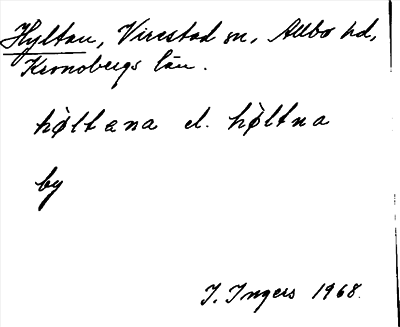 Hyltan, Virestad sn, Allbo hd,
Kronobergs län.
høltana el. høltna
by
I. Ingers 1968.